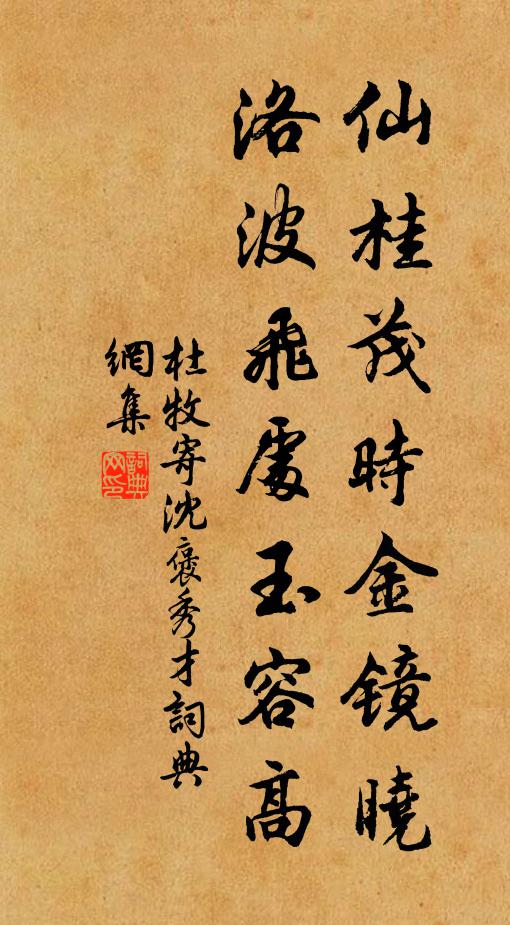 仙桂茂時金鏡曉
洛波飛處玉容高
杜牧寄沈褒秀才詞典
網集
詞典網印